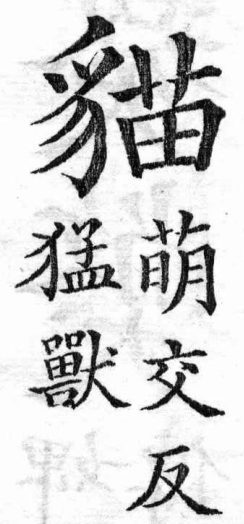 貓
萌交反
猛獸